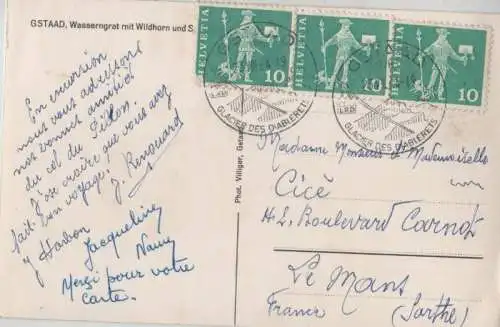 GSTAAD, Wasserngrat mit Wildhorn und S
En excursion
nous vous adressons
nos bonnes amitiés
du col du Pillon.
J'ose croire que vous avez
fait bon voyage.
J. Renouard
Jacqueline
Nany
Merci pour votre
carte.
Phot. Villiger, Gstaad
HELVETIA 10
HELVETIA 10
HELVETIA 10
GSTAAD
GLACIER DES DIABLERETS
GSTAAD
GLACIER DES DIABLERETS
Madame Monsieur & Mademoiselle
Cicé
42, Boulevard Carnot
Le Mans
(Sarthe)
France